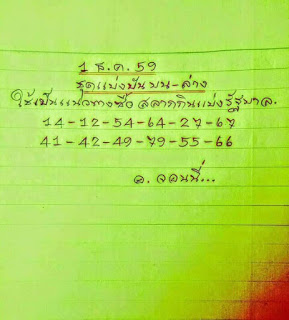 1 ธ.ค. 59
ชุดแบ่งปันบน-ล่าง
ใช้เป็นแนวทางซื้อ สลากกินแบ่งรัฐบาล.
14-12-54-64-27-67
41-42-49-79-55-66
อ. จอนนี่...